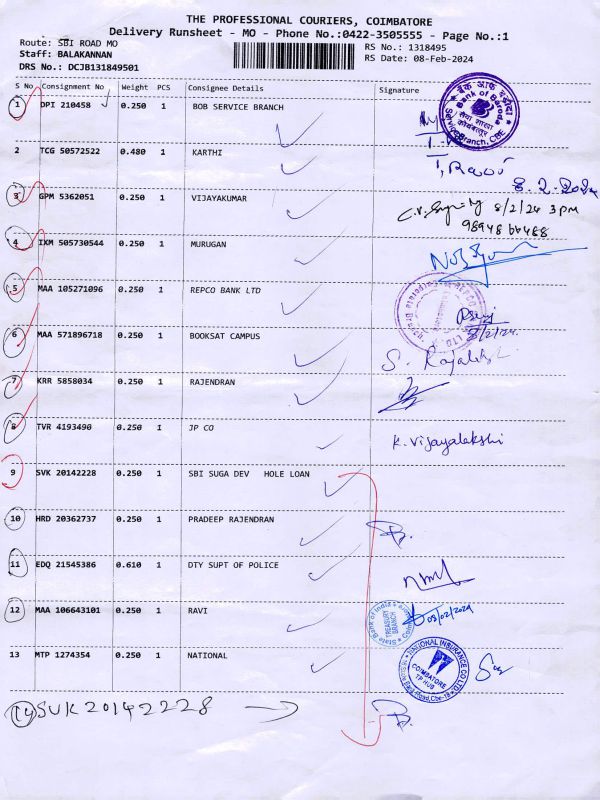 THE PROFESSIONAL COURIERS, COIMBATORE
Delivery Runsheet - MO - Phone No.:0422-3505555 - Page No.:1
Route: SBI ROAD MO
RS No.: 1318495
Staff: BALAKANNAN
RS Date: 08-Feb-2024
DRS No.: DCJB131849501
S No Consignment No Weight PCS Consignee Details Signature
1 DPI 210458 0.250 1 BOB SERVICE BRANCH
बैंक ऑफ़ बड़ौदा
Bank of Baroda
सेवा शाखा
कोयम्बत्तूर
Service Branch, CBE
2 TCG 50572522 0.480 1 KARTHI
8.2.2024
3 GPM 5362051 0.250 1 VIJAYAKUMAR
8/2/24 3PM
4 IXM 505730544 0.250 1 MURUGAN
5 MAA 105271096 0.250 1 REPCO BANK LTD
8/2/24
6 MAA 571896718 0.250 1 BOOKSAT CAMPUS
7 KRR 5858034 0.250 1 RAJENDRAN
8 TVR 4193490 0.250 1 JP CO
K. Vijayalakshi
9 SVK 20142228 0.250 1 SBI SUGA DEV HOLE LOAN
10 HRD 20362737 0.250 1 PRADEEP RAJENDRAN
11 EDQ 21545386 0.610 1 DTY SUPT OF POLICE
12 MAA 106643101 0.250 1 RAVI
State Bank of India
TREASURY
BRANCH
08/02/2024
13 MTP 1274354 0.250 1 NATIONAL
NATIONAL INSURANCE CO LTD
COIMBATORE
TP HUB
14 SVK 20142228